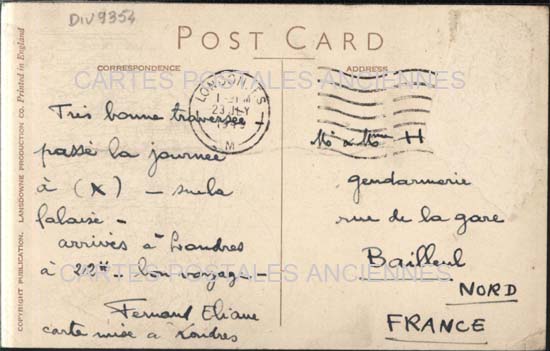 DIV9354
POST CARD
CORRESPONDENCE
ADDRESS
CARTES POSTALES ANCIENNES
LONDON. I.S
23 JLY
M
Très bonne traversée
passé la journée
à (X) - sur la
falaise -
arrivés à Londres
à 22H - bon voyage -
Fernand Eliane
carte mise à Londres
Mr & Mme H
gendarmerie
rue de la gare
Bailleul
NORD
FRANCE
CARTES POSTALES ANCIENNES
COPYRIGHT PUBLICATION. LANSDOWNE PRODUCTION CO. Printed in England